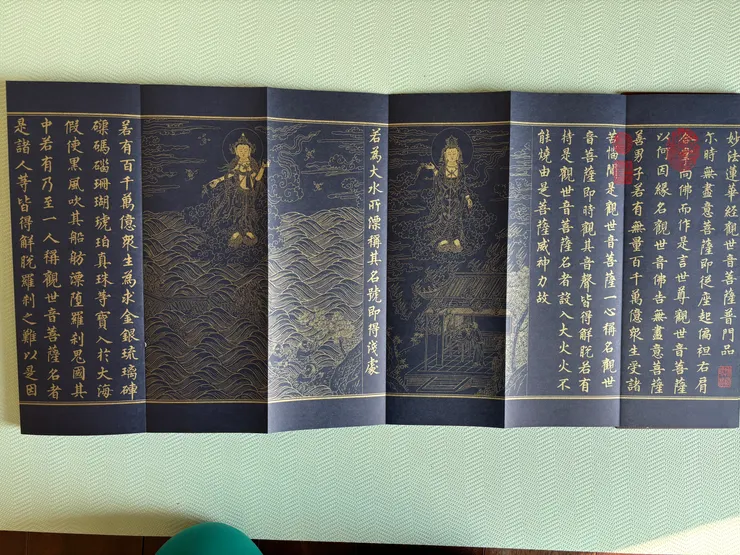 妙法蓮華經觀世音菩薩普門品
尒時無盡意菩薩即從座起偏袒右肩
合掌向佛而作是言世尊觀世音菩薩
以何因緣名觀世音佛告無盡意菩薩
善男子若有無量百千萬億眾生受諸
苦惱聞是觀世音菩薩一心稱名觀世
音菩薩即時觀其音聲皆得解脫若有
持是觀世音菩薩名者設入大火火不
能燒由是菩薩威神力故
若為大水所漂稱其名號即得淺處
若有百千萬億眾生為求金銀琉璃硨
磲碼碯珊瑚琥珀真珠等寶入於大海
假使黑風吹其船舫漂墮羅剎鬼國其
中若有乃至一人稱觀世音菩薩名者
是諸人等皆得解脫羅剎之難以是因